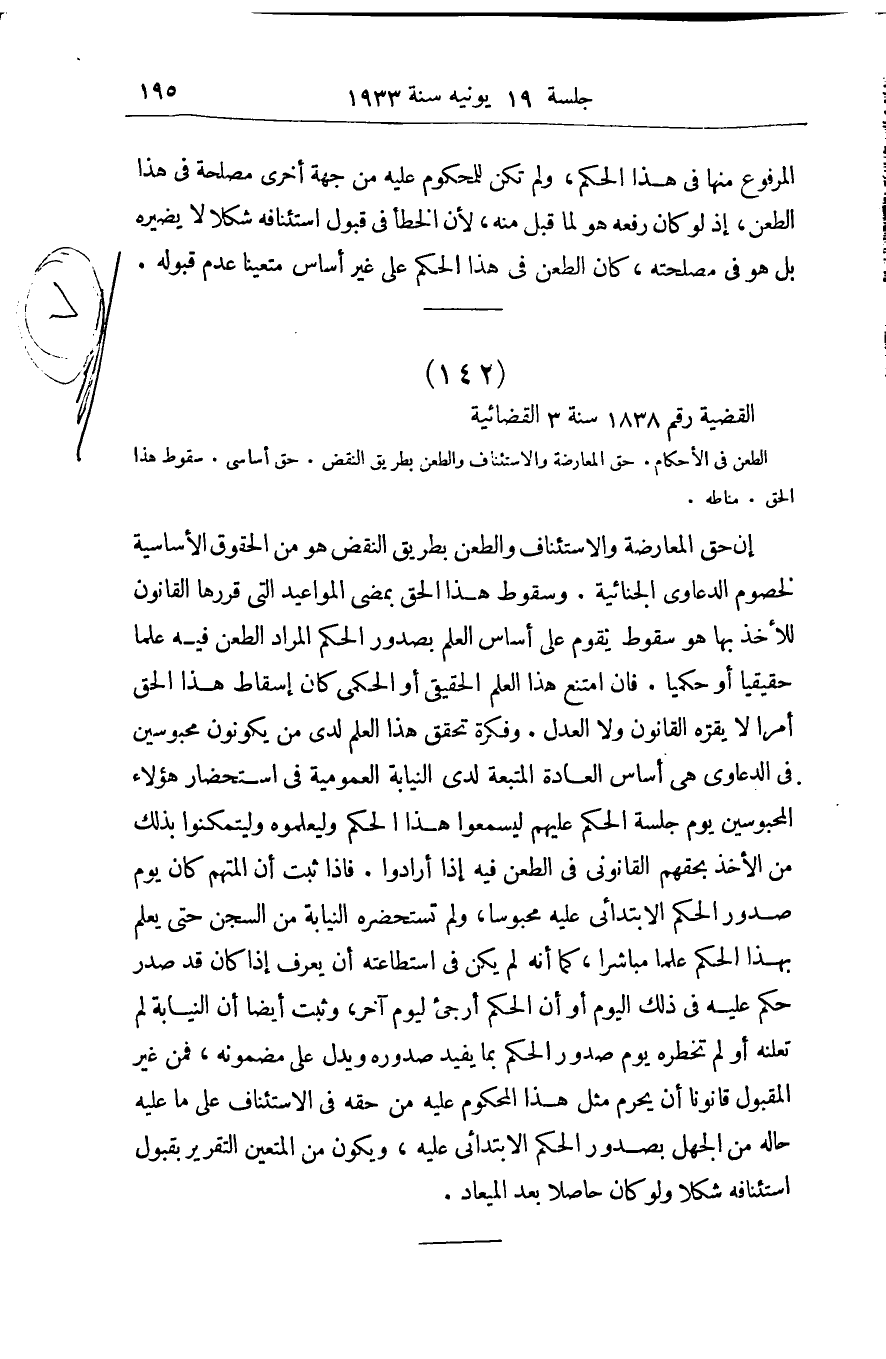 جلسة ١٩ يونيه سنة ١٩٣٣ ١٩٥
المرفوع منها فى هــذا الحكم، ولم تكن للمحكوم عليه من جهة أخرى مصلحة فى هذا
الطعن، إذ لو كان رفعه هو لما قبل منه، لأن الخطأ فى قبول استئنافه شكلا لا يضيره
بل هو فى مصلحته، كان الطعن فى هذا الحكم على غير أساس متعينا عدم قبوله .
(١٤٢)
القضية رقم ١٨٣٨ سنة ٣ القضائية
الطعن فى الأحكام . حق المعارضة والاستئناف والطعن بطريق النقض . حق أساسى . سقوط هذا
الحق . مناطه .
إن حق المعارضة والاستئناف والطعن بطريق النقض هو من الحقوق الأساسية
لخصوم الدعاوى الجنائية . وسقوط هــذا الحق بمضى المواعيد التى قررها القانون
للأخذ بها هو سقوط يقوم على أساس العلم بصدور الحكم المراد الطعن فيــه علما
حقيقيا أو حكميا . فان امتنع هذا العلم الحقيقى أو الحكمى كان إسقاط هــذا الحق
أمرا لا يقرّه القانون ولا العدل . وفكرة تحقق هذا العلم لدى من يكونون محبوسين
فى الدعاوى هى أساس العــادة المتبعة لدى النيابة العمومية فى استحضار هؤلاء
المحبوسين يوم جلسة الحكم عليهم ليسمعوا هــذا الحكم وليعلموه وليتمكنوا بذلك
من الأخذ بحقهم القانونى فى الطعن فيه إذا أرادوا . فاذا ثبت أن المتهم كان يوم
صــدور الحكم الابتدائى عليه محبوسا، ولم تستحضره النيابة من السجن حتى يعلم
بهــذا الحكم علما مباشرا، كما أنه لم يكن فى استطاعته أن يعرف إذا كان قد صدر
حكم عليــه فى ذلك اليوم أو أن الحكم أرجئ ليوم آخر، وثبت أيضا أن النيــابة لم
تعلنه أو لم تخطره يوم صدور الحكم بما يفيد صدوره ويدل على مضمونه، فمن غير
المقبول قانونا أن يحرم مثل هــذا المحكوم عليه من حقه فى الاستئناف على ما عليه
حاله من الجهل بصــدور الحكم الابتدائى عليه، ويكون من المتعين التقرير بقبول
استئنافه شكلا ولو كان حاصلا بعد الميعاد .